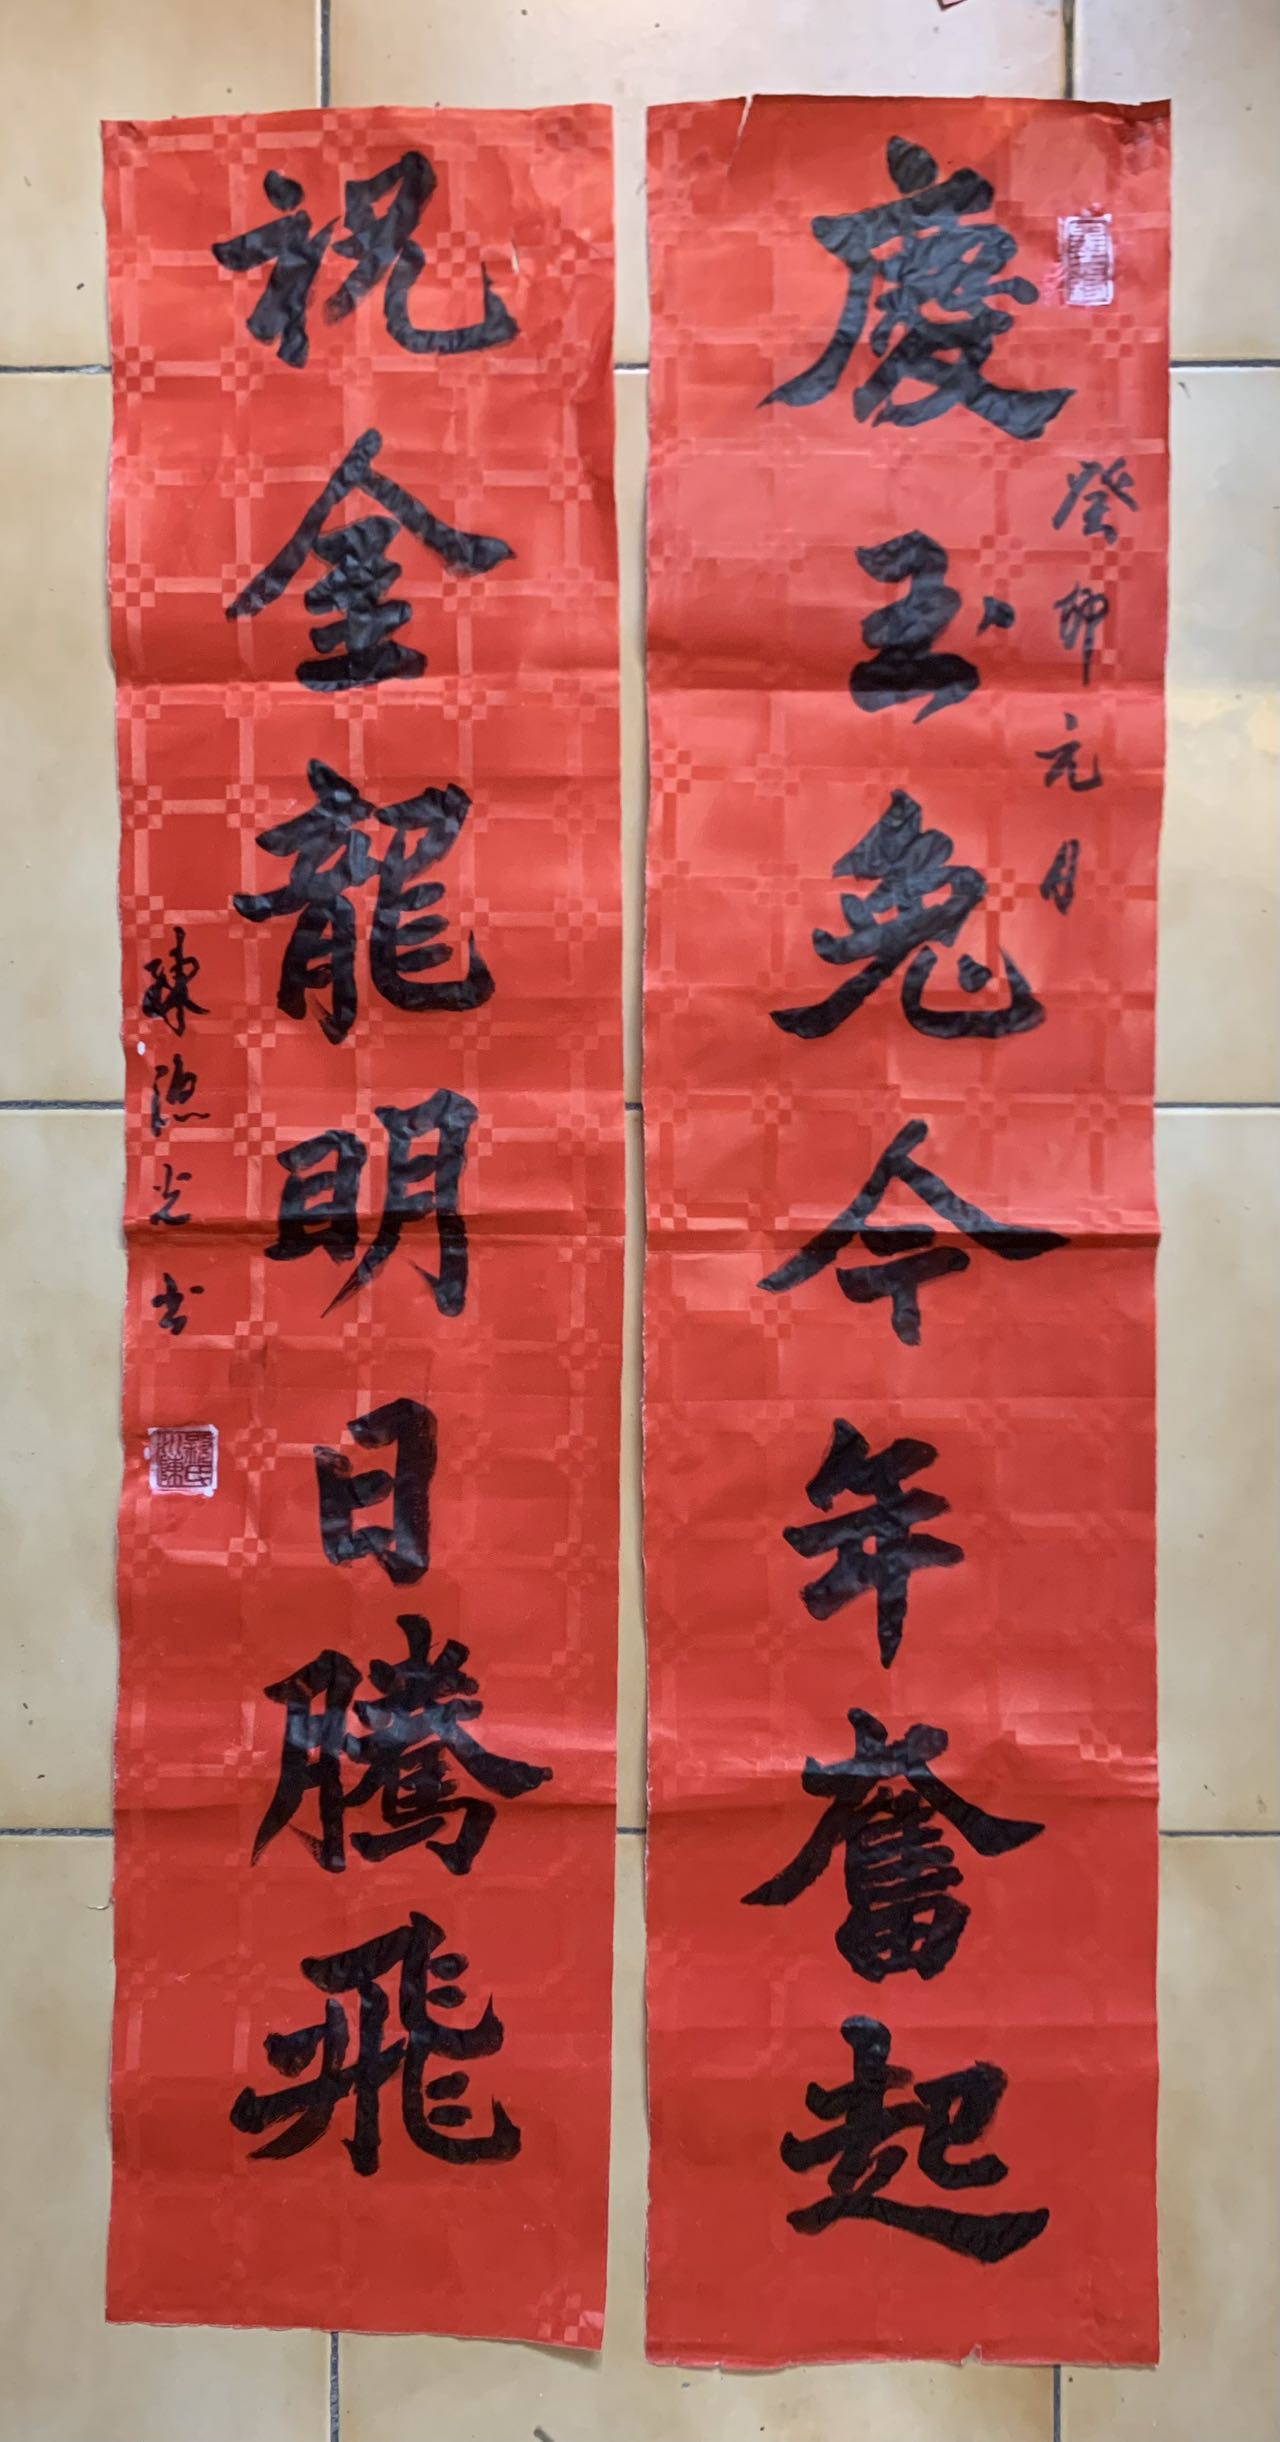 慶玉兔今年奮起
癸卯元月
祝金龍明日騰飛
陳光书